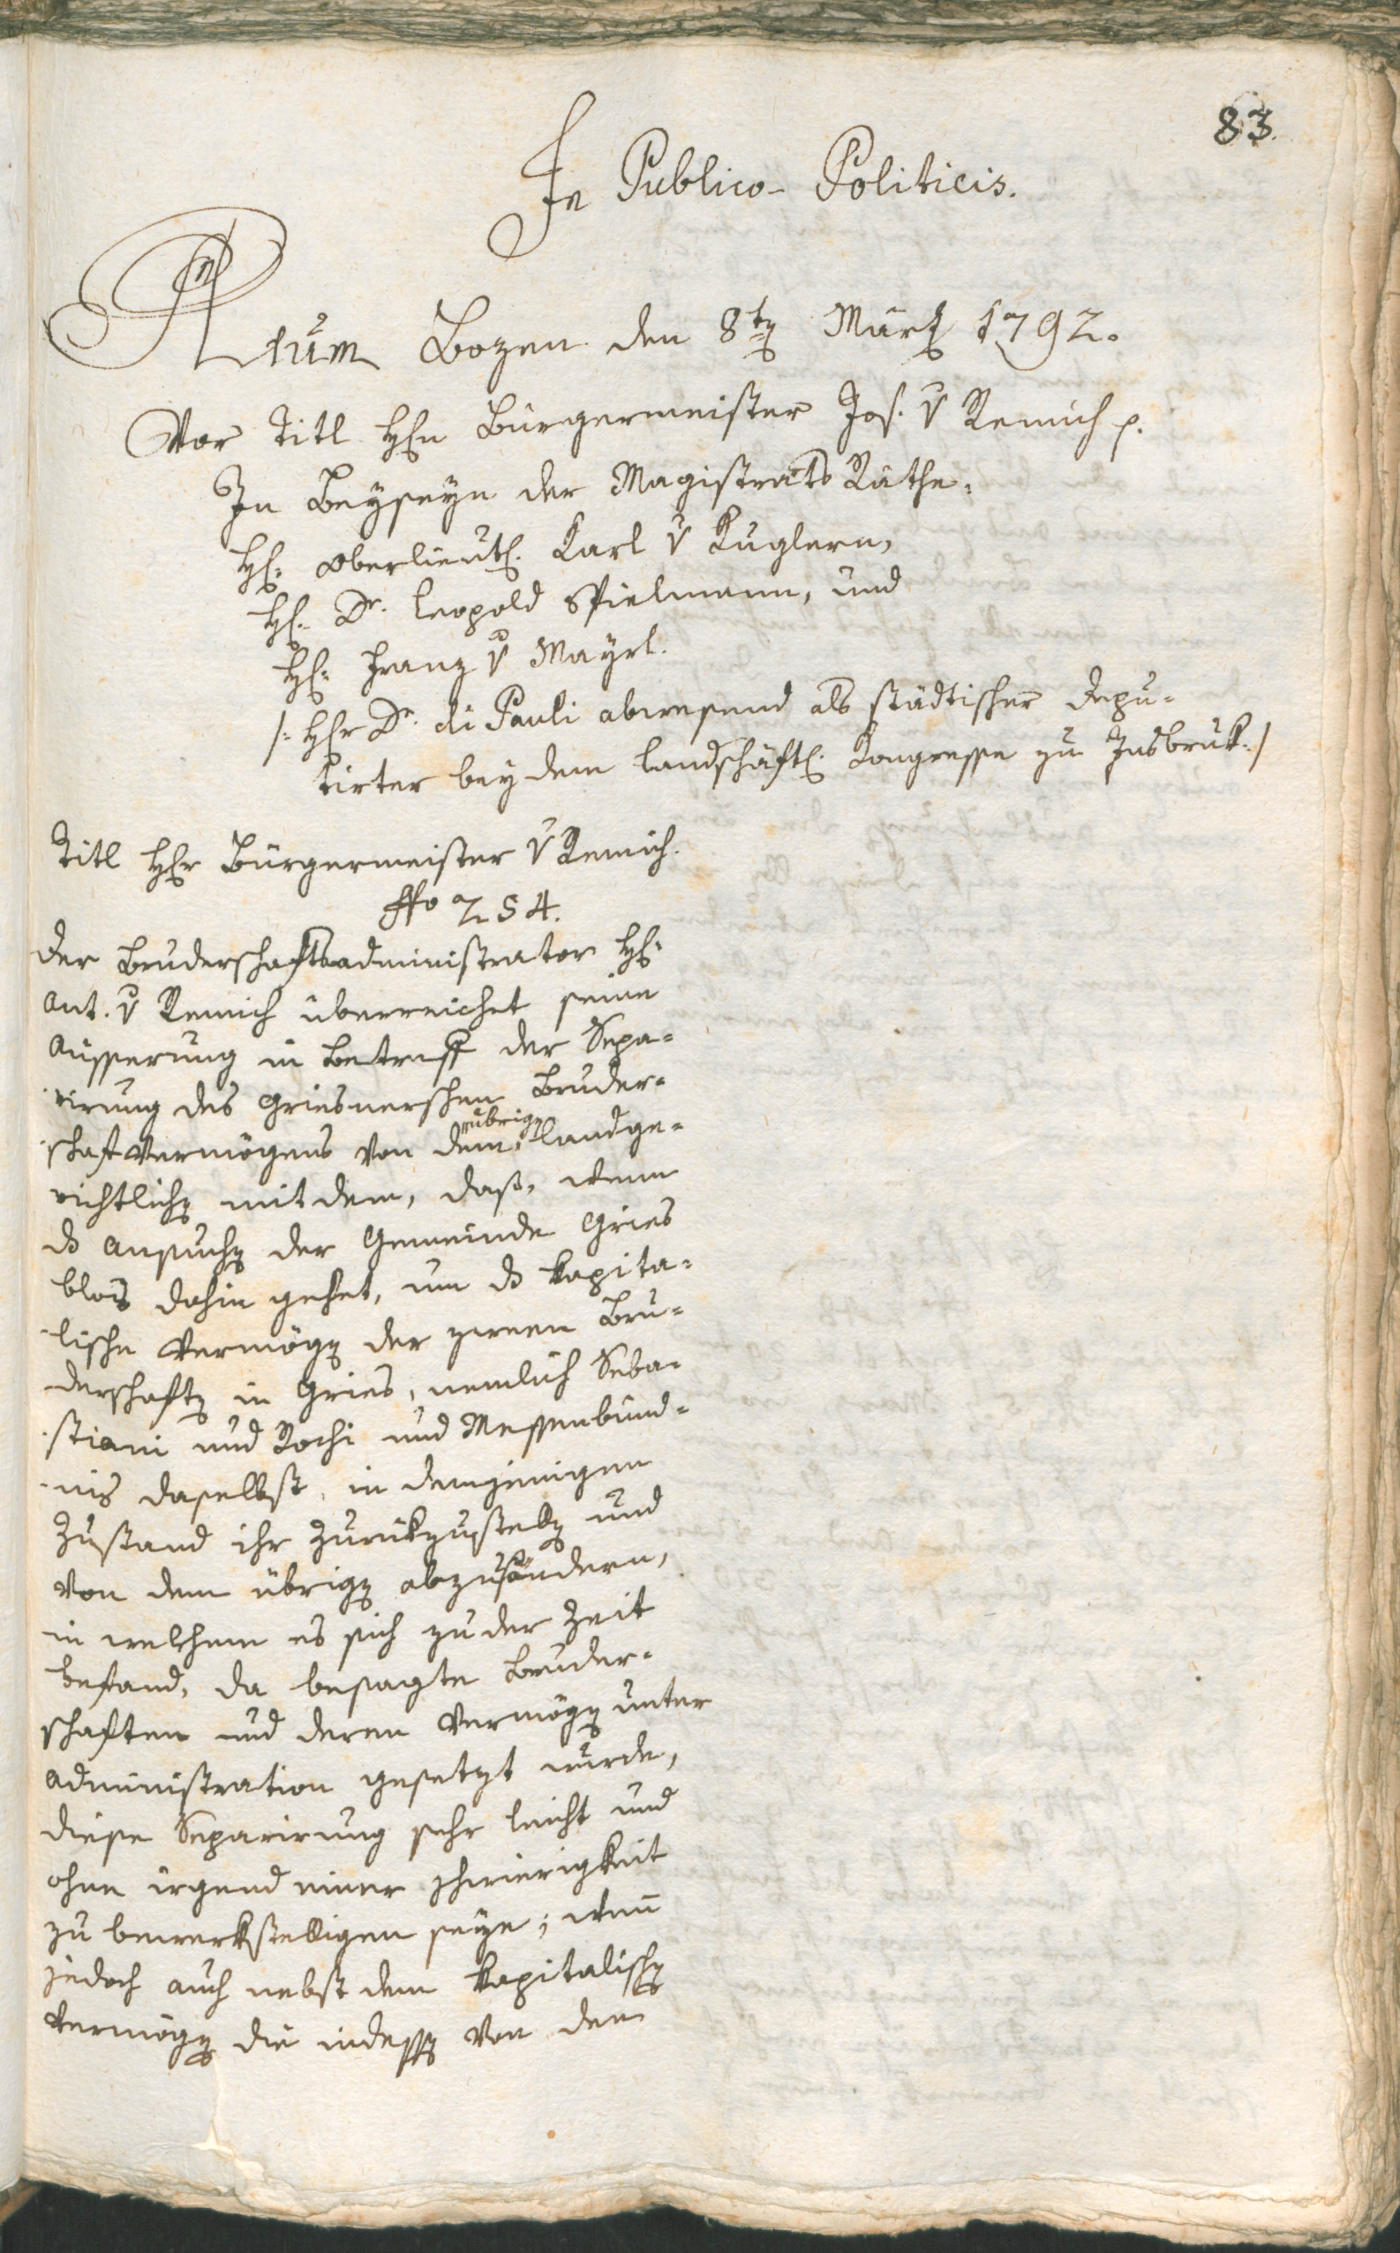 83.
In Publico-Politicis.
Actum Bozen den 8tn März 1792.
Vor Titl Hrn Bürgermeister Jos. v Remich p.
In Beyseyn der Magistrats Räthe,
Hr. Oberlieut. Karl v Kuglern,
Hr. Dr. Leopold Spielmann, und
Hr. Franz v Mayrl.
/: Hr Dr. di Pauli abwesend als städtischer Depu-
tirter bey dem landschäftl. Kongresse zu Insbruk :/
Titl Hr Bürgermeister v Remich.
254.
Der Bruderschaftsadministrator Hr.
Ant. v Remich überreichet seine
Äusserung in Betreff der Sepa-
rirung des Griesnerschen Bruder-
schaftvermögens von dem übrign landge-
richtlichn mit dem, daß, wenn
ds Ansuchn der Gemeinde Gries
blos dahin gehet, um ds kapita-
lische Vermögn der zween Bru-
derschaftn in Gries, nemlich Seba-
stiani und Rochi und Messenbünd-
nis daselbst, in demjenigen
Zustand ihr zurükzustelln und
von dem übrign abzusöndern,
in welchem es sich zu der Zeit
befand, da besagte Bruder-
schaften und deren Vermögn unter
Administration gesetzt wurde,
diese Separirung sehr leicht und
ohne irgend einer schwierigkeit
zu bewerkstelligen seye; wenn
jedoch auch nebst dem kapitalischn
Vermögn die indessn von dem